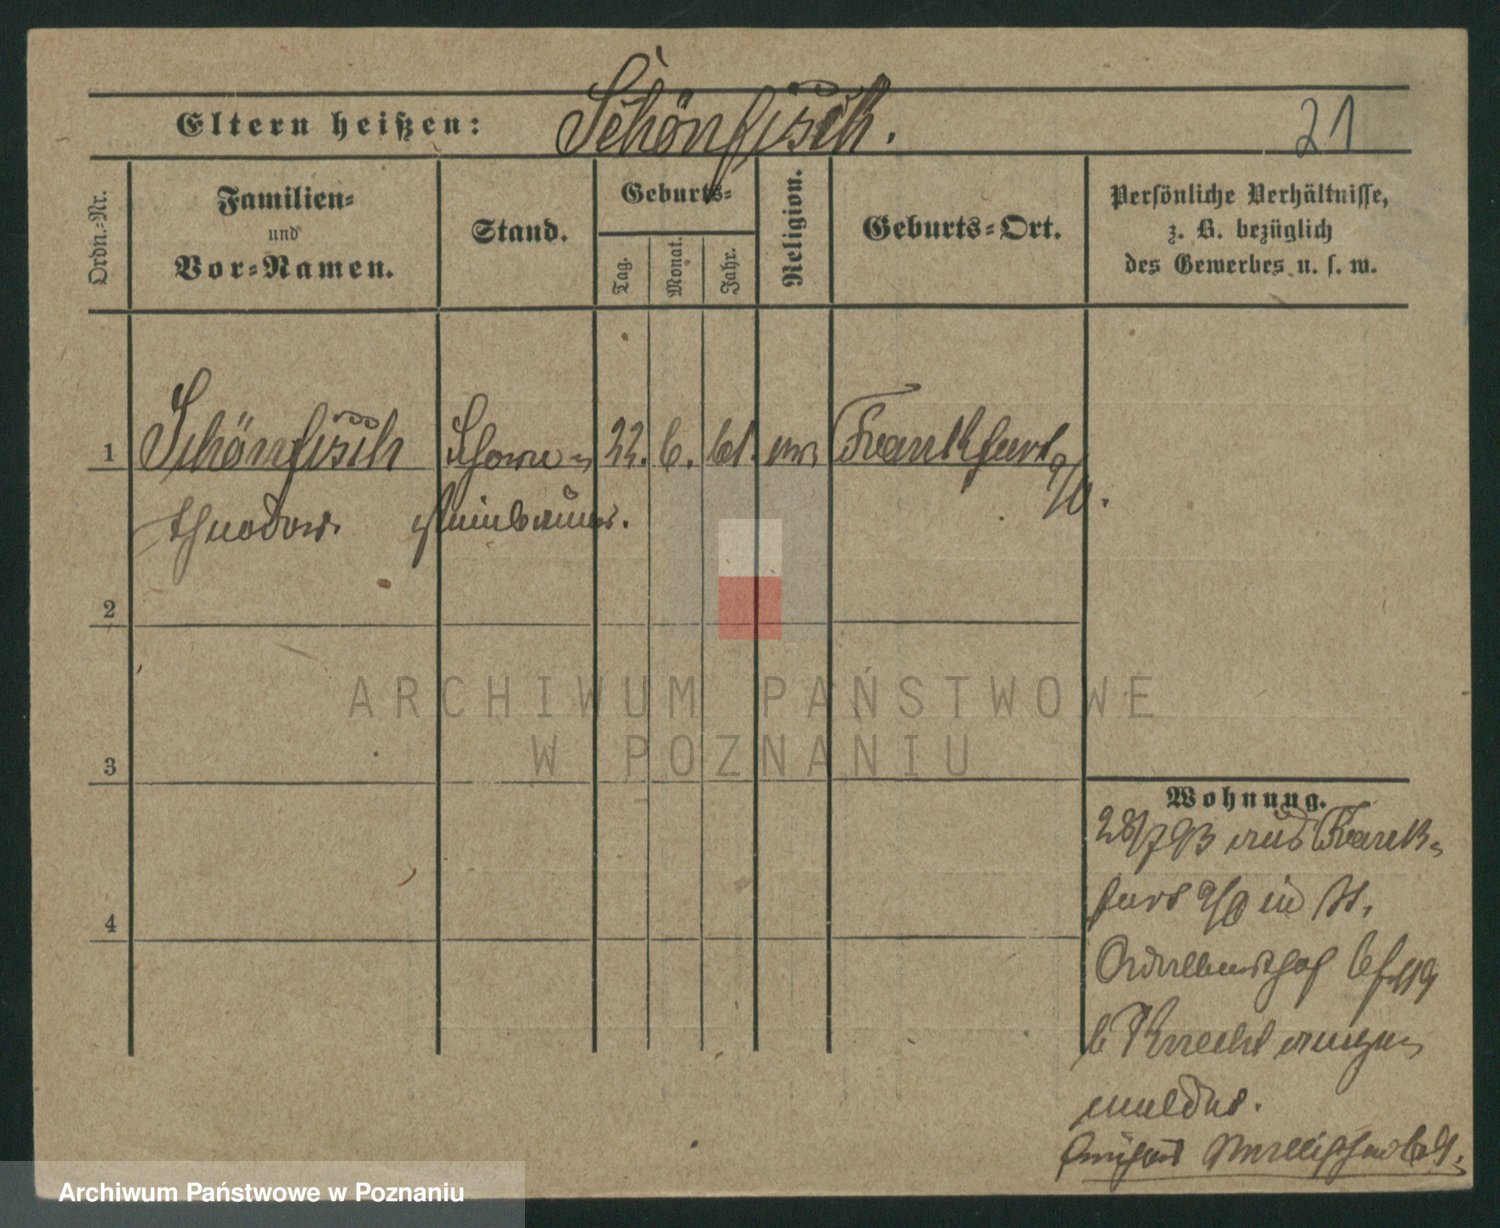 Eltern heißen: Schönfisch. 21
Ordn.-Nr.
Familien-
und
Vor-Namen.
Stand.
Geburts-
Tag.
Monat.
Jahr.
Religion.
Geburts-Ort.
Persönliche Verhältnisse,
z. B. bezüglich
des Gewerbes u. s. w.
1 Schönfisch 22. 6. 61. Frankfurt
Theodor. a/O.
2
3
4
Wohnung.
28/7 93 aus Frank-
furt a/O in St.
Adalbert
b Knecht ange-
meldet.
ARCHIWUM PAŃSTWOWE
W POZNANIU
Archiwum Państwowe w Poznaniu